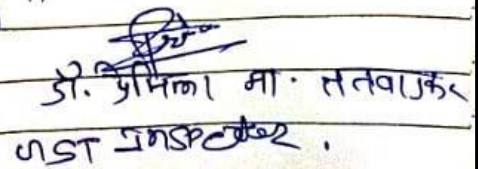 डॉ. प्रमिला मा. ततवाडकर
GST Inspector.